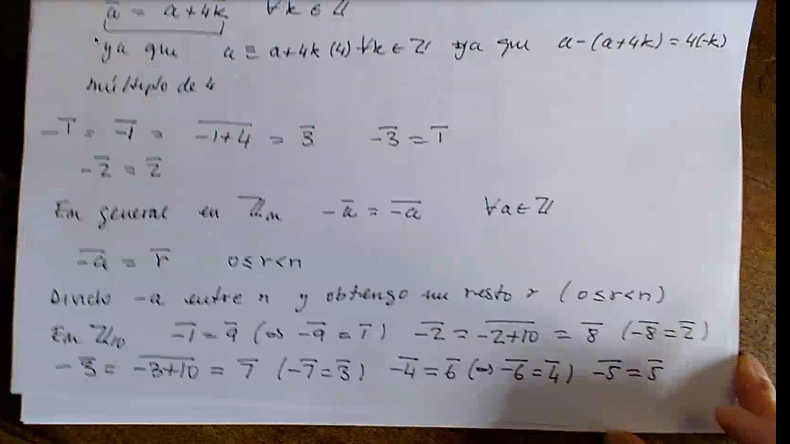 a̅ = a+4k ∀k∈ℤ
ya que a ≡ a+4k (4) ∀k∈ℤ ya que a-(a+4k) = 4(-k)
múltiplo de 4
-1̅ = \overline{-1} = \overline{-1+4} = 3̅ -3̅ = 1̅
-2̅ = 2̅
En general en ℤn -a̅ = \overline{-a} ∀a∈ℤ
\overline{-a} = r̅ 0≤r<n
Divido -a entre n y obtengo un resto r (0≤r<n)
En ℤ10 -1̅ = 9̅ (⇔ -9̅ = 1̅) -2̅ = \overline{-2+10} = 8̅ (-8̅ = 2̅)
-3̅ = \overline{-3+10} = 7̅ (-7̅ = 3̅) -4̅ = 6̅ (⇔ -6̅ = 4̅) -5̅ = 5̅